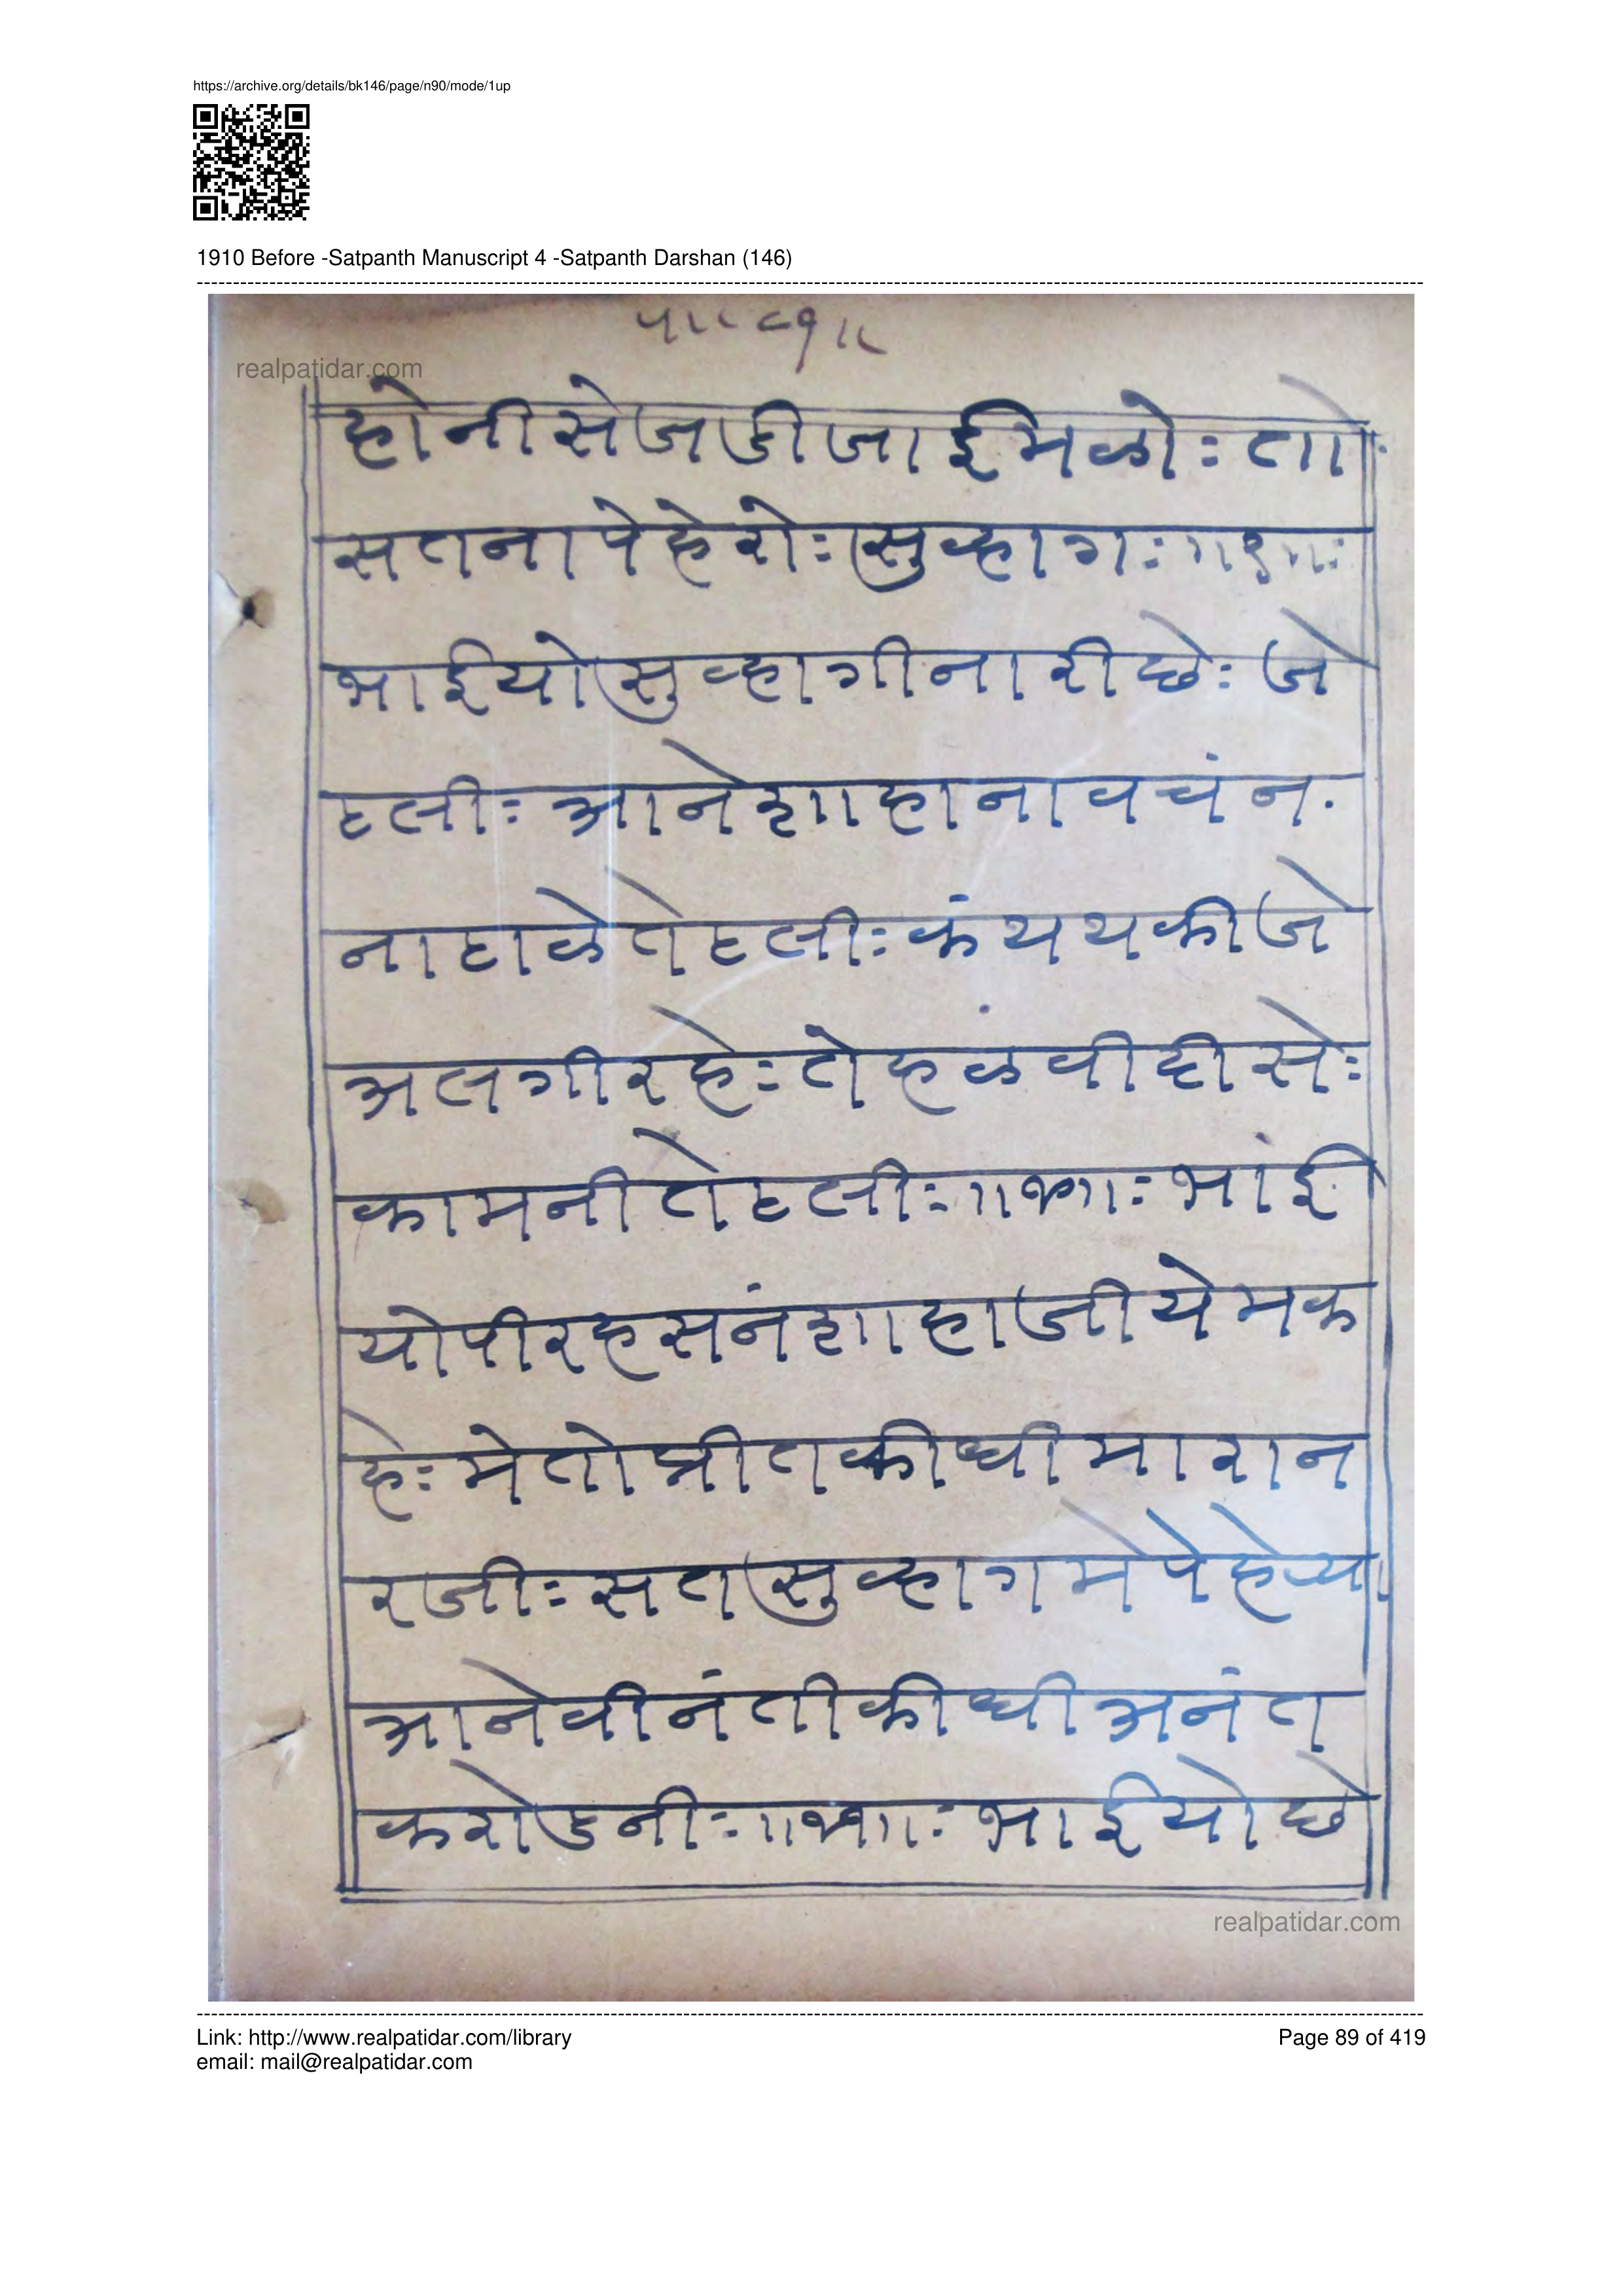 https://archive.org/details/bk146/page/n90/mode/1up
1910 Before -Satpanth Manuscript 4 -Satpanth Darshan (146)
realpatidar.com
होनीसेजडीजाईमळो: तो
सतनापेहेरो: सुव्हाग:
भाईयोसुव्हागीनारीछे: जे
टली: आनेशाहानावचंन.
नाटाळेतेटली: कंथथकीजे
अलगीरहे: तेहळवीदीसे:
कामनीतेटली: भांई
योपीरहसनंशाहाजीयेमक
हे: मेतोप्रीतकीधीमारान
रजी: सतसुव्हागमेपेहेय्या
आनेवीनंतीकीधीअनंत
करोडनी: भाईयोछे
realpatidar.com
Link: http://www.realpatidar.com/library
Page 89 of 419
email: mail@realpatidar.com